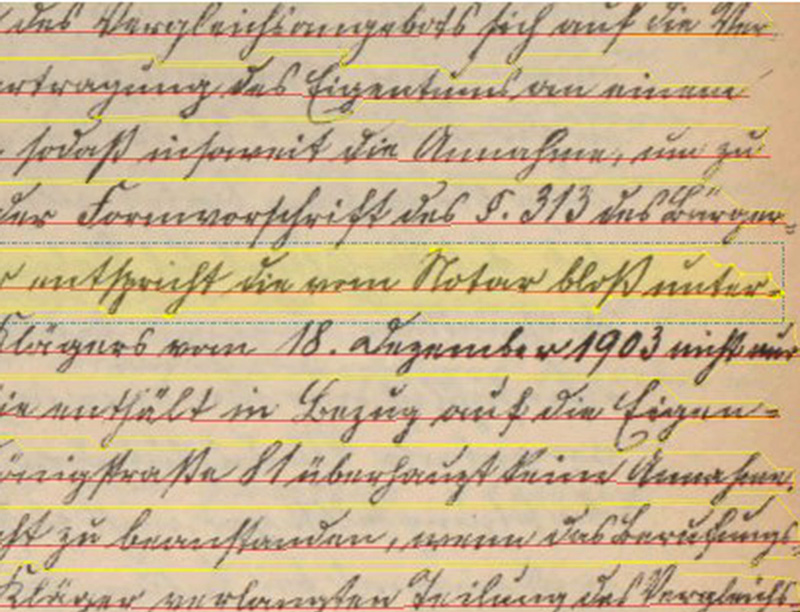 des Vergleichsangebots sich auf die Ver-
ertragung des Eigentums an einem
, sodaß insoweit die Annahme, um zu
der Formvorschrift des §. 313 des Bürger-
r entspricht die vom Notar bloß unter-
Klägers vom 18. Dezember 1903 nicht nur
ie enthält in Bezug auf die Eigen-
önigstraße 81 überhaupt keine Annahme.
cht zu beanstanden, wenn das Berufungs-
Kläger verlangten Teilung des Vergleichs